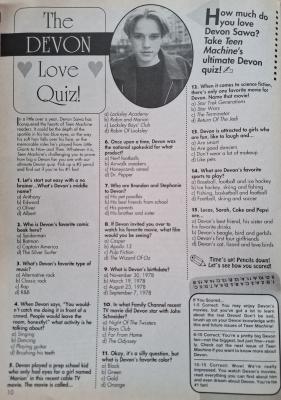 The
DEVON
Love
Quiz!
In a little over a year, Devon Sawa has
conquered the hearts of Teen Machine
readers. It could be the depth of the
sparkle in his ice blue eyes, or the way
his soft hair falls over his face, or the
memorable roles he's played from Little
Giants to Now and Then. Whatever it is,
Teen Machine's challenging you to prove
how big a Devon fan you are with our
ultimate Devon quiz. Pick up a #2 pencil
and find out if you're his #1 fan!
1. Let's start out easy with a no
brainer...What's Devon's middle
name?
a) Anthony
b) Edward
c) Oliver
d) Albert
2. Who is Devon's favorite comic
book hero?
a) Spiderman
b) Batman
c) Captain America
d) The Silver Surfer
3. What's Devon's favorite type of
music?
a) Alternative rock
b) Classic rock
c) Rap
d) R&B
4. When Devon says, "You would-
n't catch me doing it in front of a
crowd. People would leave the
room, honestly!" what activity is he
talking about?
a) Singing
b) Dancing
c) Playing guitar
d) Brushing his teeth
5. Devon played a prep school kid
who only had eyes for a girl named
Marian in this recent cable TV
movie. The movie is called...
a) Locksley Academy
b) Robin and Marian
c) Locksley Boys' Club
d) Robin Of Locksley
6. Once upon a time, Devon was
the national spokeskid for what
product?
a) Nerf footballs
b) Airwalk sneakers
c) Honeycomb cereal
d) Dr. Pepper
7. Who are Brandon and Stephanie
to Devon?
a) His pet poodles
b) His best friends from school
c) His parents
d) His brother and sister
8. If Devon invited you over to
watch his favorite movie, what film
would you be seeing?
a) Casper
b) Apollo 13
c) Pulp Fiction
d) The Wizard Of Oz
9. What is Devon's birthdate?
a) November 30, 1978
b) March 19, 1978
c) August 23, 1978
d) September 7, 1978
10. In what Family Channel recent
TV movie did Devon star with John
Schneider?
a) Night Of The Twisters
b) Boys Club
c) Far From Home
d) The Odyssey
11. Okay, it's a silly question, but
what is Devon's favorite color?
a) Black
b) Green
c) Gold
d) Orange
How much do
you love
Devon Sawa?
Take Teen
Machine's
ultimate Devon
quiz!
12. When it comes to science fiction,
there's only one favorite movie for
Devon. Name that movie!
a) Star Trek Generations
b) Star Wars
c) The Terminator
d) Return Of The Jedi
13. Devon is attracted to girls who
are fun, like to laugh and...
a) Are smart
b) Are good dancers
c) Don't wear a lot of makeup
d) Like pets
14. What are Devon's favorite
sports to play?
a) Baseball, football and ice hockey
b) Ice hockey, skiing and fishing
c) Fishing, basketball and football
d) Football, skiing and soccer
15. Lucas, Sarah, Coke and Pepsi
are...
a) Devon's best friend, his sister and
his favorite drinks
b) Devon's beagle, bird and gerbils
c) Devon's first four girlfriends
d) Devon's cat, ferret and lovebirds
Time's up! Pencils down!
Let's see how you scored!
If You Scored...
1-5 Correct: You may enjoy Devon's
movies, but you've got a lot to learn
about the real Devon! Don't be sad,
brush up on your Devon knowledge with
this and future issues of Teen Machine!
6-10 Correct: You're a pretty big Devon
fan—not the biggest, but just fine—real-
ly. Check out the next issue of Teen
Machine if you want to know more about
Devon.
10-15 Correct: Wow! We're really
impressed. You watch Devon's movies,
read everything you can find about him
and even dream about Devon. You're his
#1 fan!
10